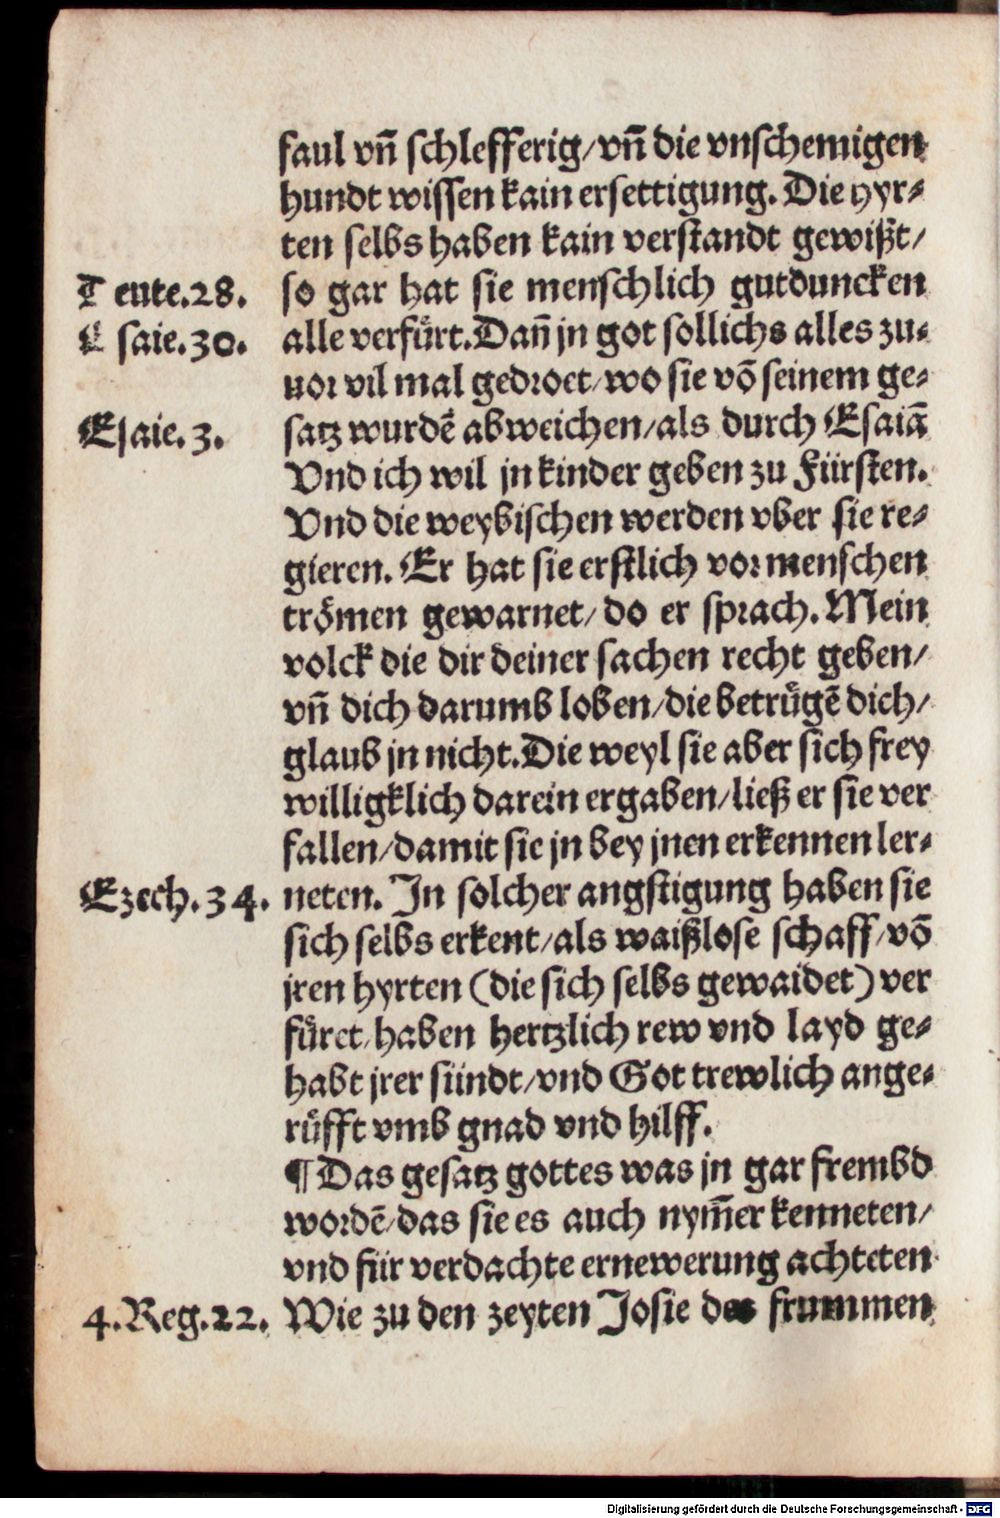 faul vn̄ schlefferig/vn̄ die vnschemigen
hundt wissen kain ersettigung. Die hyr⸗
ten selbs haben kain verstandt gewißt/
Teute.28. so gar hat sie menschlich gutduncken
Esaie.30. alle verfuͤrt. Dan̄ jn got sollichs alles zu⸗
uor vil mal gedroet/wo sie vō seinem ge⸗
Esaie.3. satz wurdē abweichen/als durch Esaiā
Vnd ich wil jn kinder geben zu Fürsten.
Vnd die weybischen werden vber sie re⸗
gieren. Er hat sie erstlich vor menschen
troͤmen gewarnet/do er sprach. Mein
volck die dir deiner sachen recht geben/
vn̄ dich darumb loben/die betruͤgē dich/
glaub jn nicht. Die weyl sie aber sich frey
willigklich darein ergaben/ließ er sie ver
fallen/damit sie jn bey jnen erkennen ler⸗
Ezech.34. neten. In solcher angstigung haben sie
sich selbs erkent/als waißlose schaff/vō
jren hyrten (die sich selbs gewaidet) ver
fuͤret/haben hertzlich rew vnd layd ge⸗
habt jrer sündt/vnd Got trewlich ange⸗
ruͤfft vmb gnad vnd hilff.
¶ Das gesatz gottes was jn gar frembd
wordē/das sie es auch nym̄er kenneten/
vnd für verdachte ernewerung achteten
4.Reg.22. Wie zu den zeyten Josie des frummen
Digitalisierung gefördert durch die Deutsche Forschungsgemeinschaft - DFG